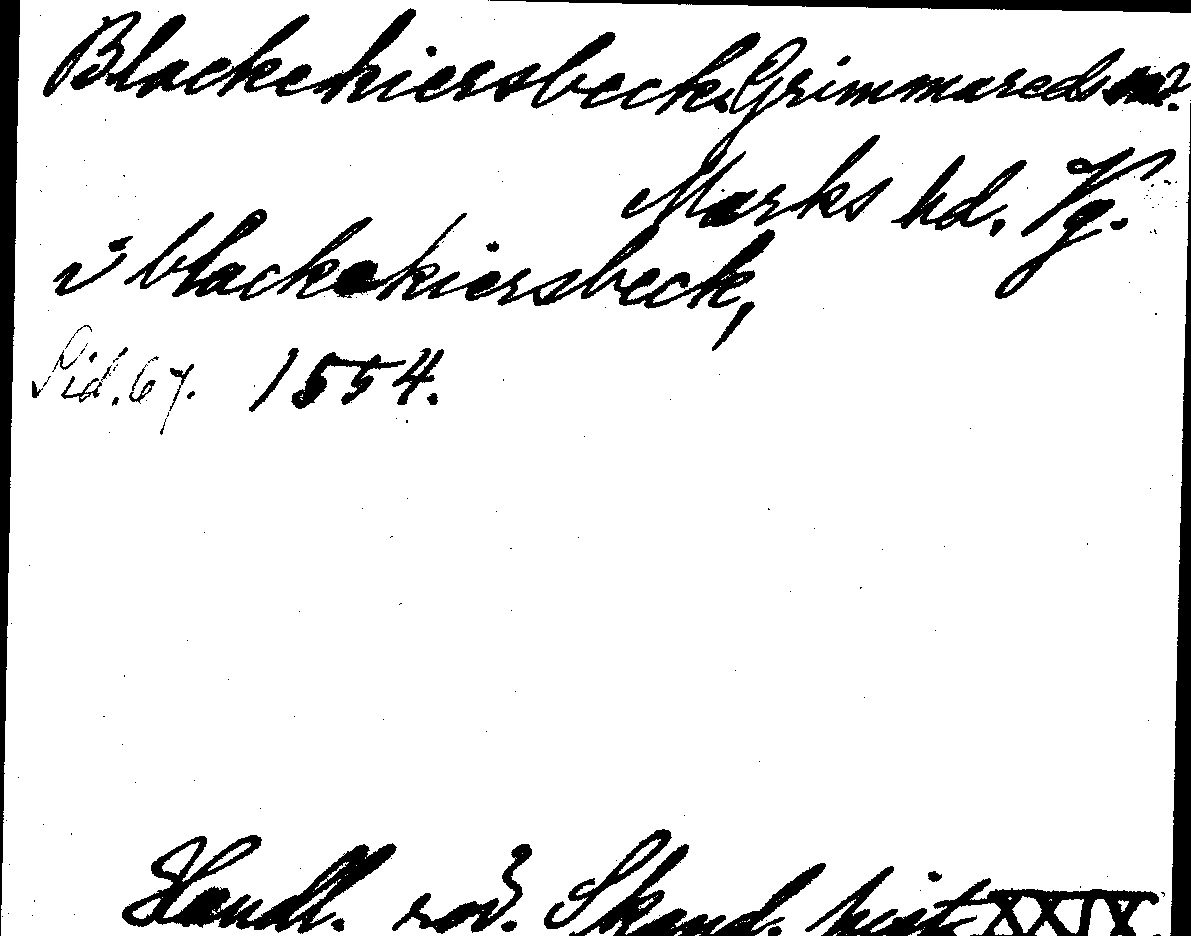 Blackekiersbeck. Grimmareds
Marks hd. Vg.
i blackekiersbeck,
Sid. 67. 1554.
Handl. rör. Skand. hist. XXIX.